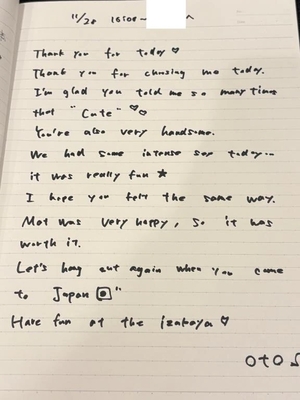 11/28 16:00~
Thank you for today♡
Thank you for chosing me today.
I'm glad you told me so many times
that "Cute"♡♡
You're also very handsome.
We had some intense sex today...
it was really fun★
I hope you felt the same way.
Mot was very happy, so it was
worth it.
Let's hang out again when you come
to Japan🇯🇵"
Have fun at the izakaya♡